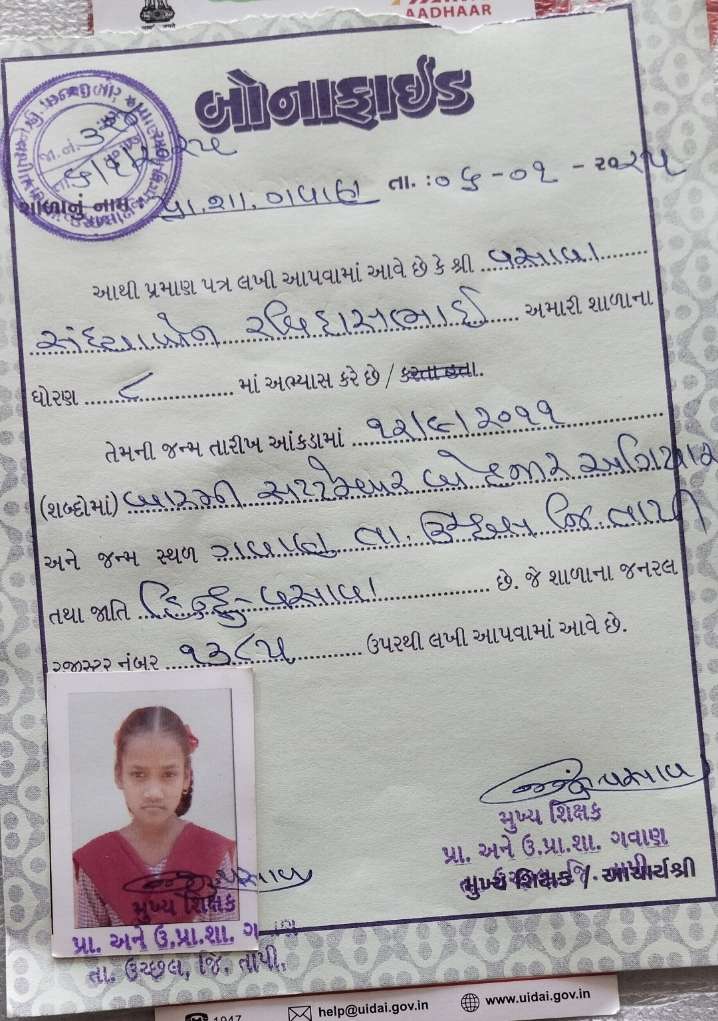 AADHAAR
બોનાફાઈડ
જા.નં. ૩૨૦
શાળાનું નામ : પ્રા.શા. ગવાણ તા. : ૦૬-૦૧-૨૦૨૫
આથી પ્રમાણ પત્ર લખી આપવામાં આવે છે કે શ્રી વસાવા
સંધ્યાબેન રવિદાસભાઈ અમારી શાળાના
ધોરણ ૮ માં અભ્યાસ કરે છે / કરતા હતા.
તેમની જન્મ તારીખ આંકડામાં ૧૨/૯/૨૦૧૧
(શબ્દોમાં) બારમી સપ્ટેમ્બર બે હજાર અગિયાર
અને જન્મ સ્થળ ગવાણ તા. ઉચ્છલ જિ. તાપી
તથા જાતિ હિન્દુ-વસાવા છે. જે શાળાના જનરલ
રજીસ્ટર નંબર ૧૩૮૫ ઉપરથી લખી આપવામાં આવે છે.
મુખ્ય શિક્ષક
પ્રા. અને ઉ.પ્રા.શા. ગવાણ
તા. ઉચ્છલ, જિ. તાપી.
મુખ્ય શિક્ષક / આચાર્યશ્રી
મુખ્ય શિક્ષક
પ્રા. અને ઉ.પ્રા.શા. ગવાણ
તા. ઉચ્છલ, જિ. તાપી.
1947 help@uidai.gov.in www.uidai.gov.in